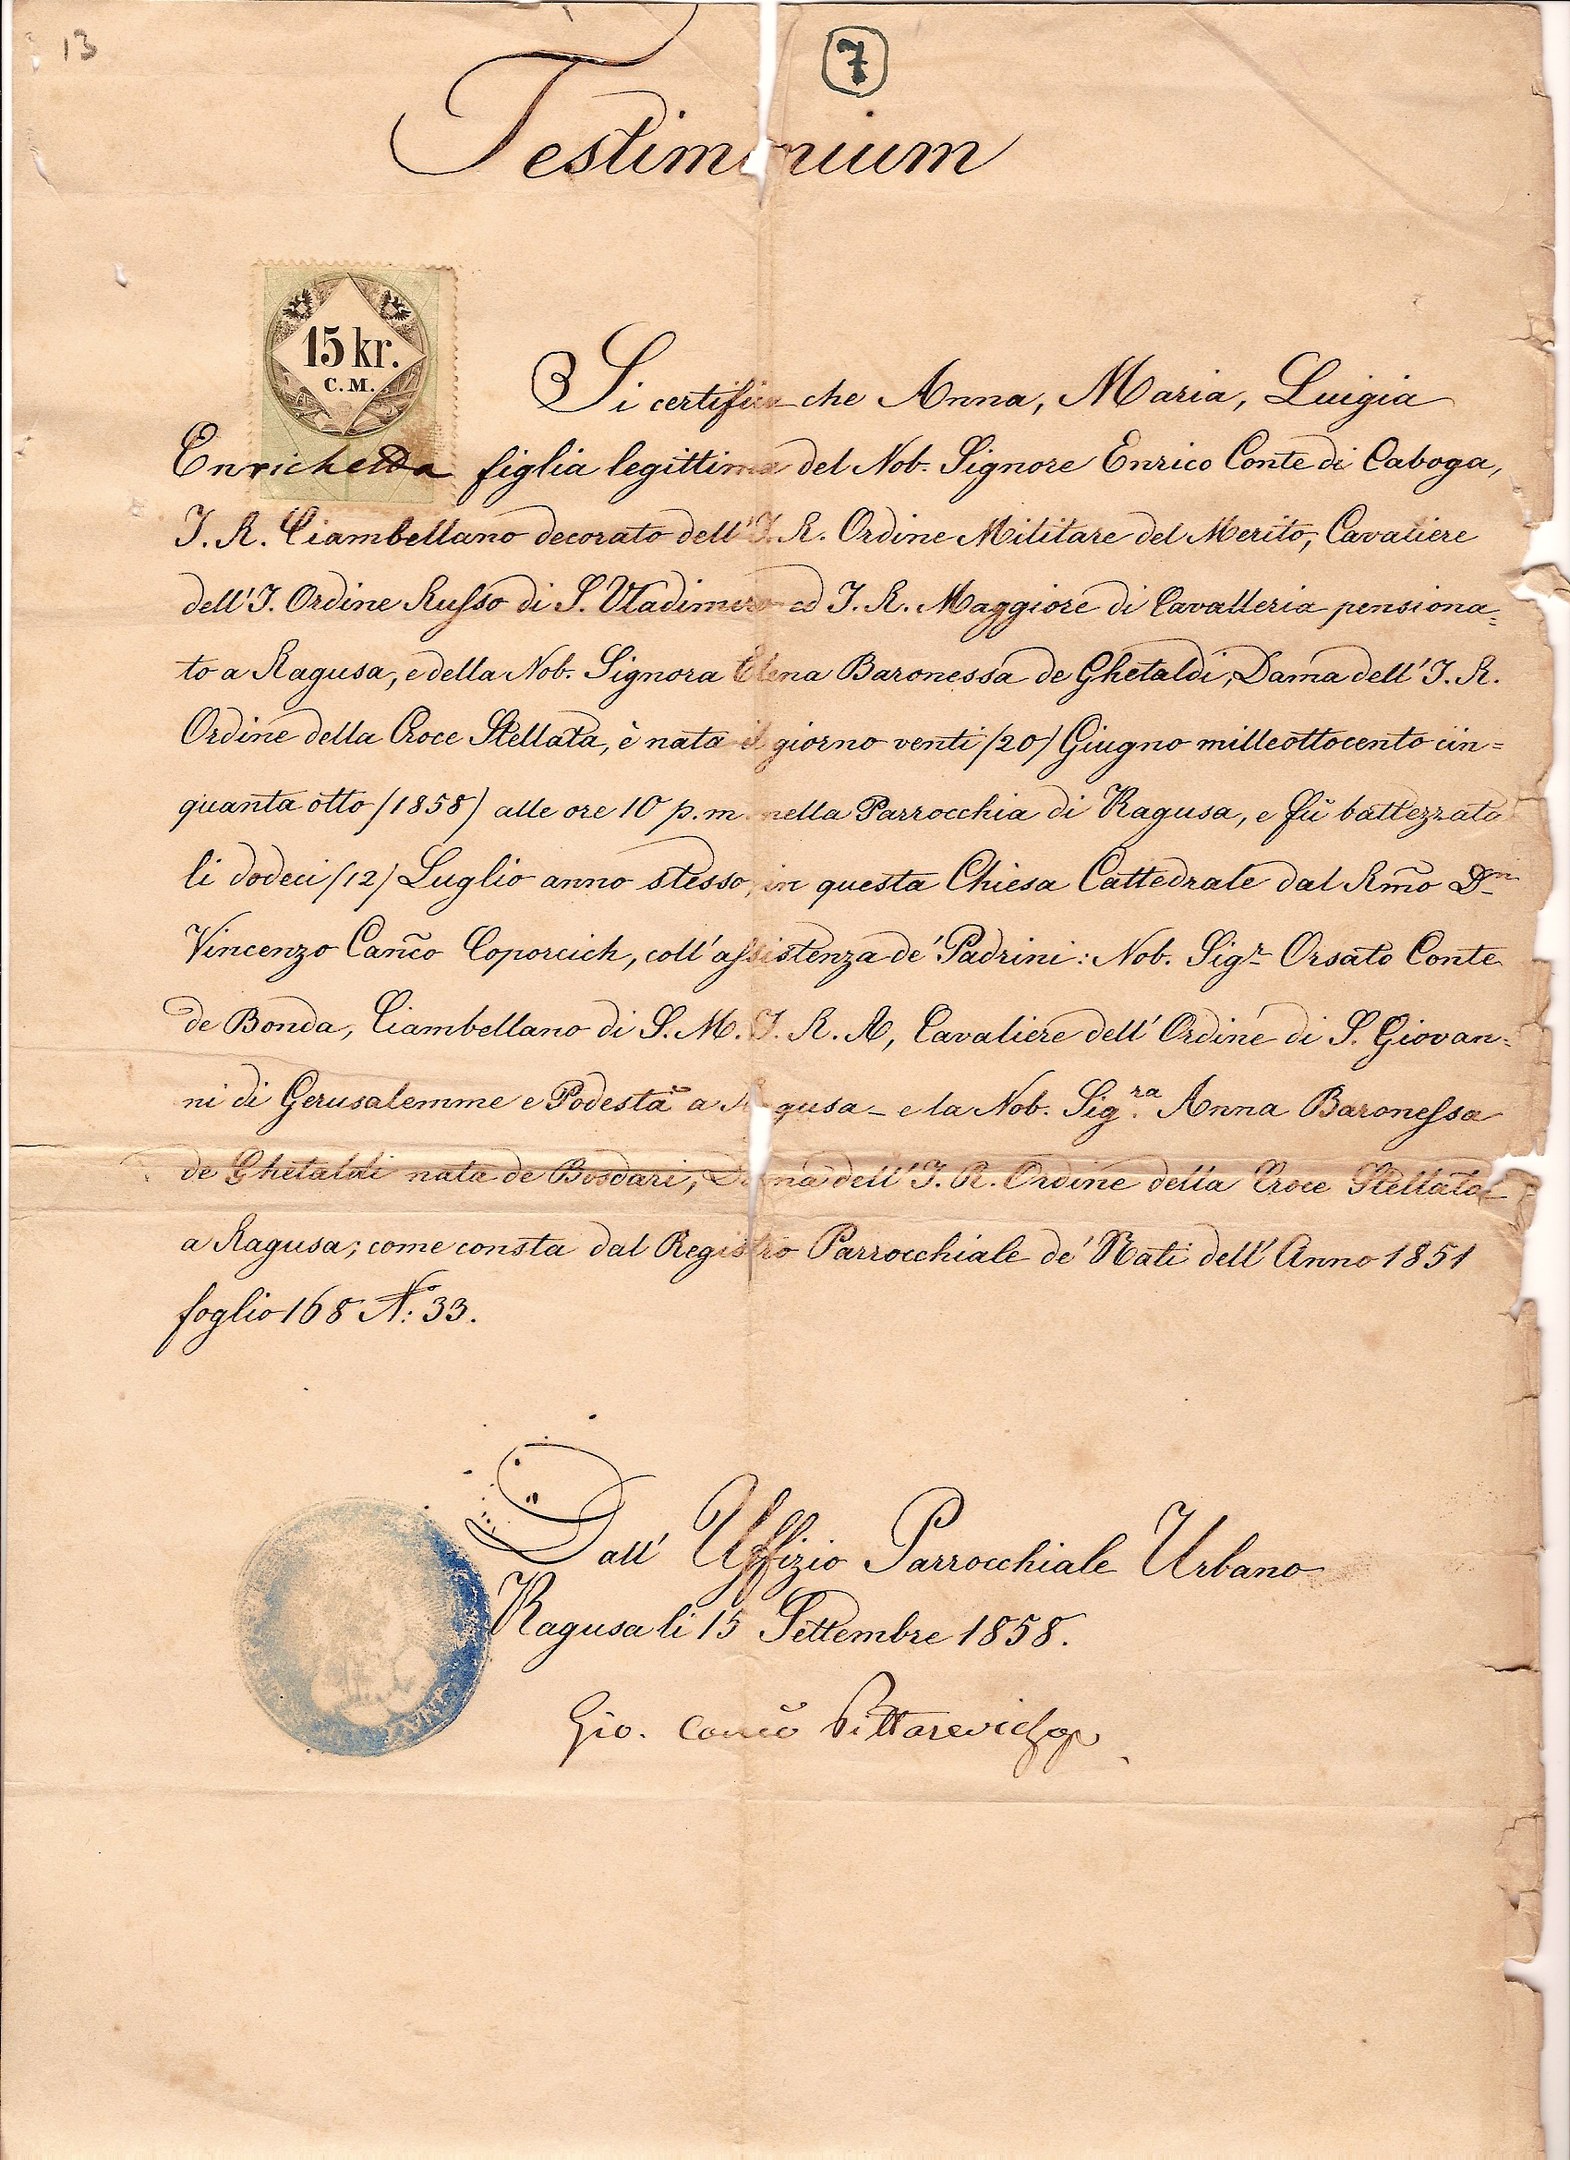 13
7
Testimonium
15 kr.
C. M.
Si certifica che Anna, Maria, Luigia
Enrichetta figlia legittima del Nob. Signore Enrico Conte di Caboga,
I. R. Ciambellano decorato dell' I. R. Ordine Militare del Merito, Cavaliere
dell' I. Ordine Russo di S. Vladimiro ed I. R. Maggiore di Cavalleria pensiona=
to a Ragusa, e della Nob. Signora Elena Baronessa de Ghetaldi, Dama dell' I. R.
Ordine della Croce Stellata, è nata il giorno venti /20/ Giugno milleottocento cin=
quanta otto /1858/ alle ore 10 p. m. nella Parrocchia di Ragusa, e fù battezzata
li dodeci /12/ Luglio anno stesso, in questa Chiesa Cattedrale dal Rm̃o Dn
Vincenzo Can̄co Coporcich, coll' assistenza de' Padrini: Nob. Sigr Orsato Conte
de Bonda, Ciambellano di S. M. I. R. A, Cavaliere dell' Ordine di S. Giovan=
ni di Gerusalemme e Podestà a Ragusa - e la Nob. Sig.ra Anna Baronessa
de Ghetaldi nata de Bosdari, Dama dell' I. R. Ordine della Croce Stellata
a Ragusa; come consta dal Registro Parrocchiale de' Nati dell' Anno 1851
foglio 168 No: 33.
Dall' Uffizio Parrocchiale Urbano
Ragusa li 15 Settembre 1858.
Gio. Can̄co Pittarevich